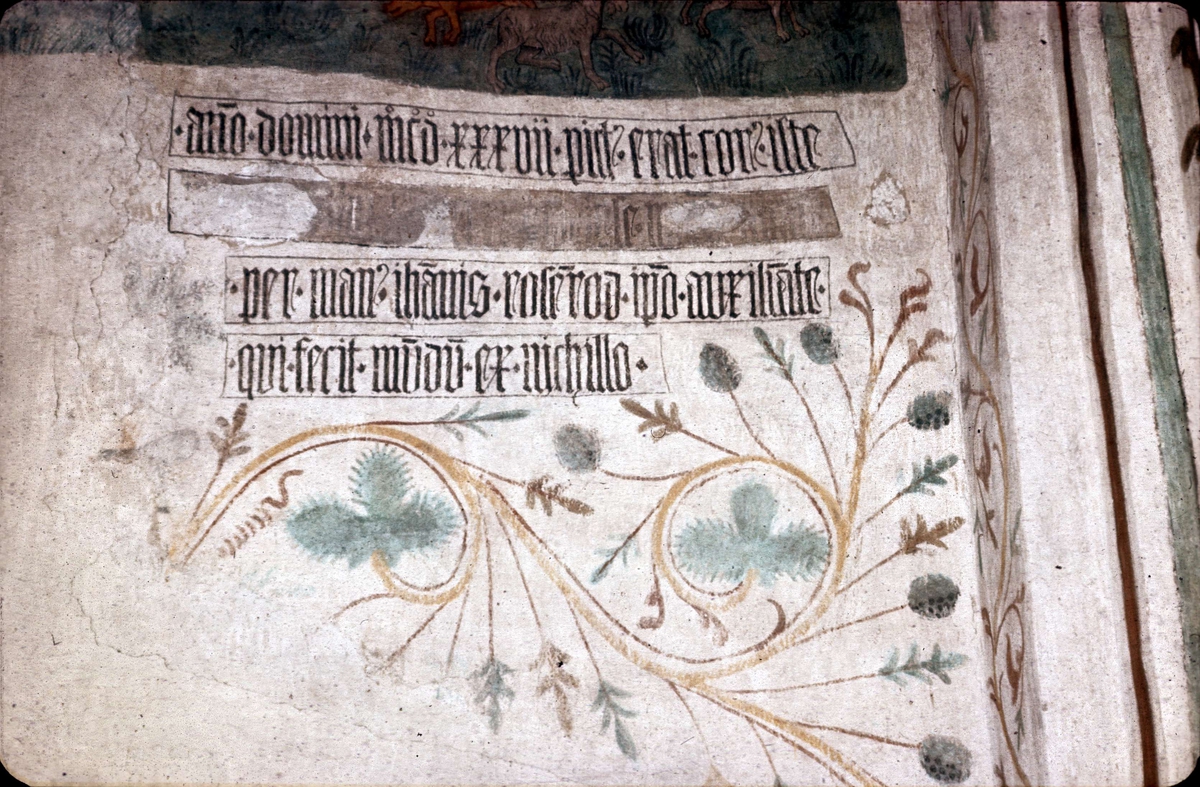 ·an̄o·domini·m̊c̊d̊·xxxvii·pictꝰ·erat·corꝰ·iste
·per·manꝰ·ihānis·rosērod·ip̄o·auxiliāte·
·qui·fecit·mūdū·ex·nichillo·